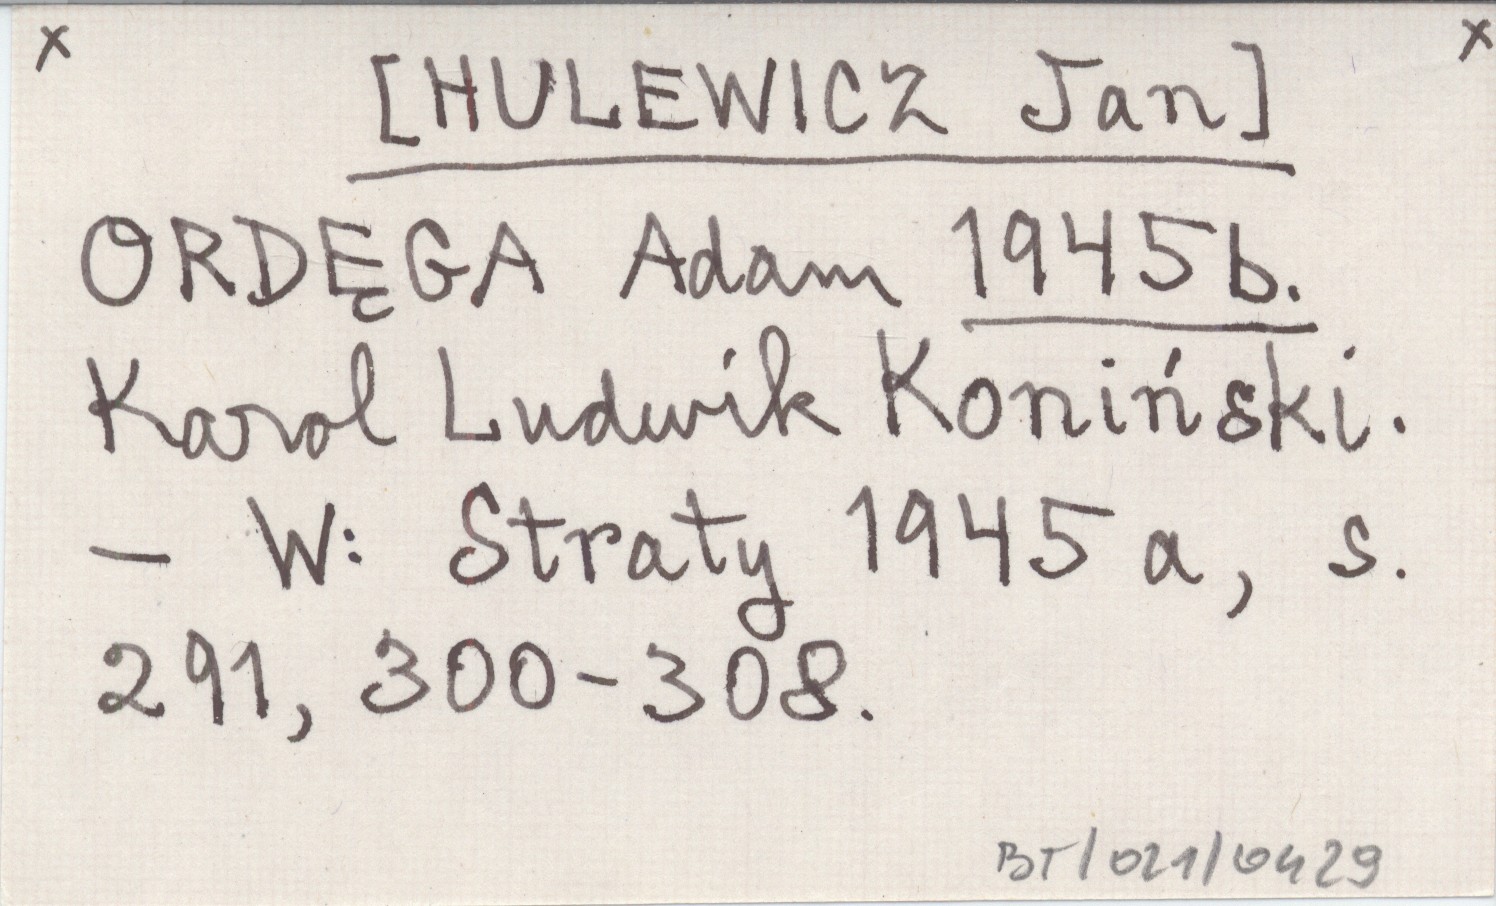 x x
[HULEWICZ Jan]
ORDĘGA Adam 1945b.
Karol Ludwik Koniński.
— W: Straty 1945a, s.
291, 300-308.
BT/021/0429